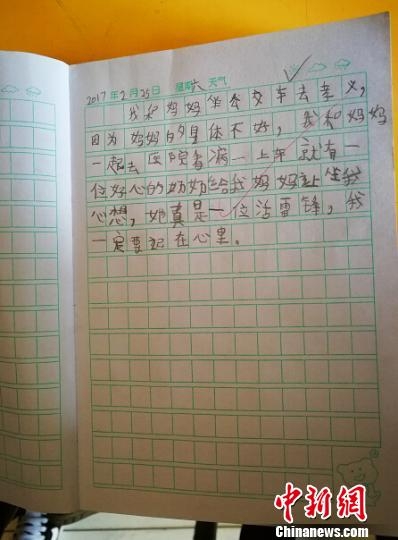 2017年2月25日 星期六 天气
我和妈妈坐公交车去孝义,
因为妈妈的身体不好,我和妈妈
一起去医院看病一上车就有一
位好心的奶奶给我妈妈让坐我
心想,她真是一位活雷锋,我
一定要记在心里。
中新网
Chinanews.com